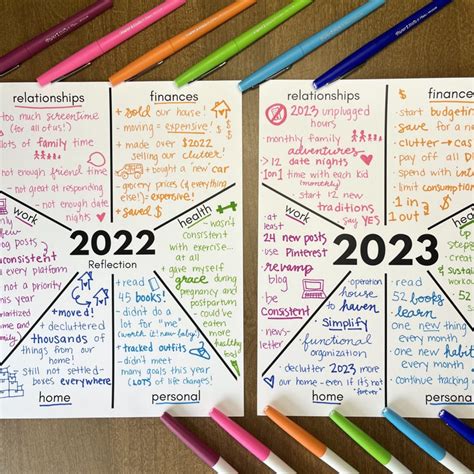 relationships
- too much screentime
(for all of us!)
- lots of family time
- not enough friend time
- not great at responding
- not enough date nights
finances
+ sold our house!
- moving - expensive!
+ made over $2022
selling our clutter!
+ bought a new car
- grocery prices (& everything
else!) - expensive!
+ saved $
work
blog posts
inconsistent
on every platform
- not a priority
health
- wasn't
consistent
with exercise...
at all
- gave myself
grace during
pregnancy and
postpartum
- could've
eaten
more
healthy
food
2022
Reflection
+ moved!
+ decluttered
thousands of
things from our
home!
- still not settled-
boxes everywhere
home
+ read
45 books!
- didn't do a
lot for "me"
(worth it! new baby!)
+ tracked outfits
- didn't meet
many goals this year
(LOTS of life changes!)
personal
relationships
2023 unplugged
hours
- monthly family
adventures
- 12 date nights
- 1on1 time with each kid
(monthly)
- start 12 new
traditions
- say YES
finances
- start budgeting
- save for a
- clutter → cash
- pay off all
- spend with
- limit consumption
- 1 in
1 out
work
- at
least
24 new posts
- use Pinterest
- revamp
blog
- be
consistent
- news-
letter
health
2023
- operation
house to
haven
- Simplify
- functional
organization
- declutter 2023 more
our home - even if it's not
"forever"
home
- read
52 books
- learn
one new thing
every month
- one new habit
every month
- continue tracking
personal